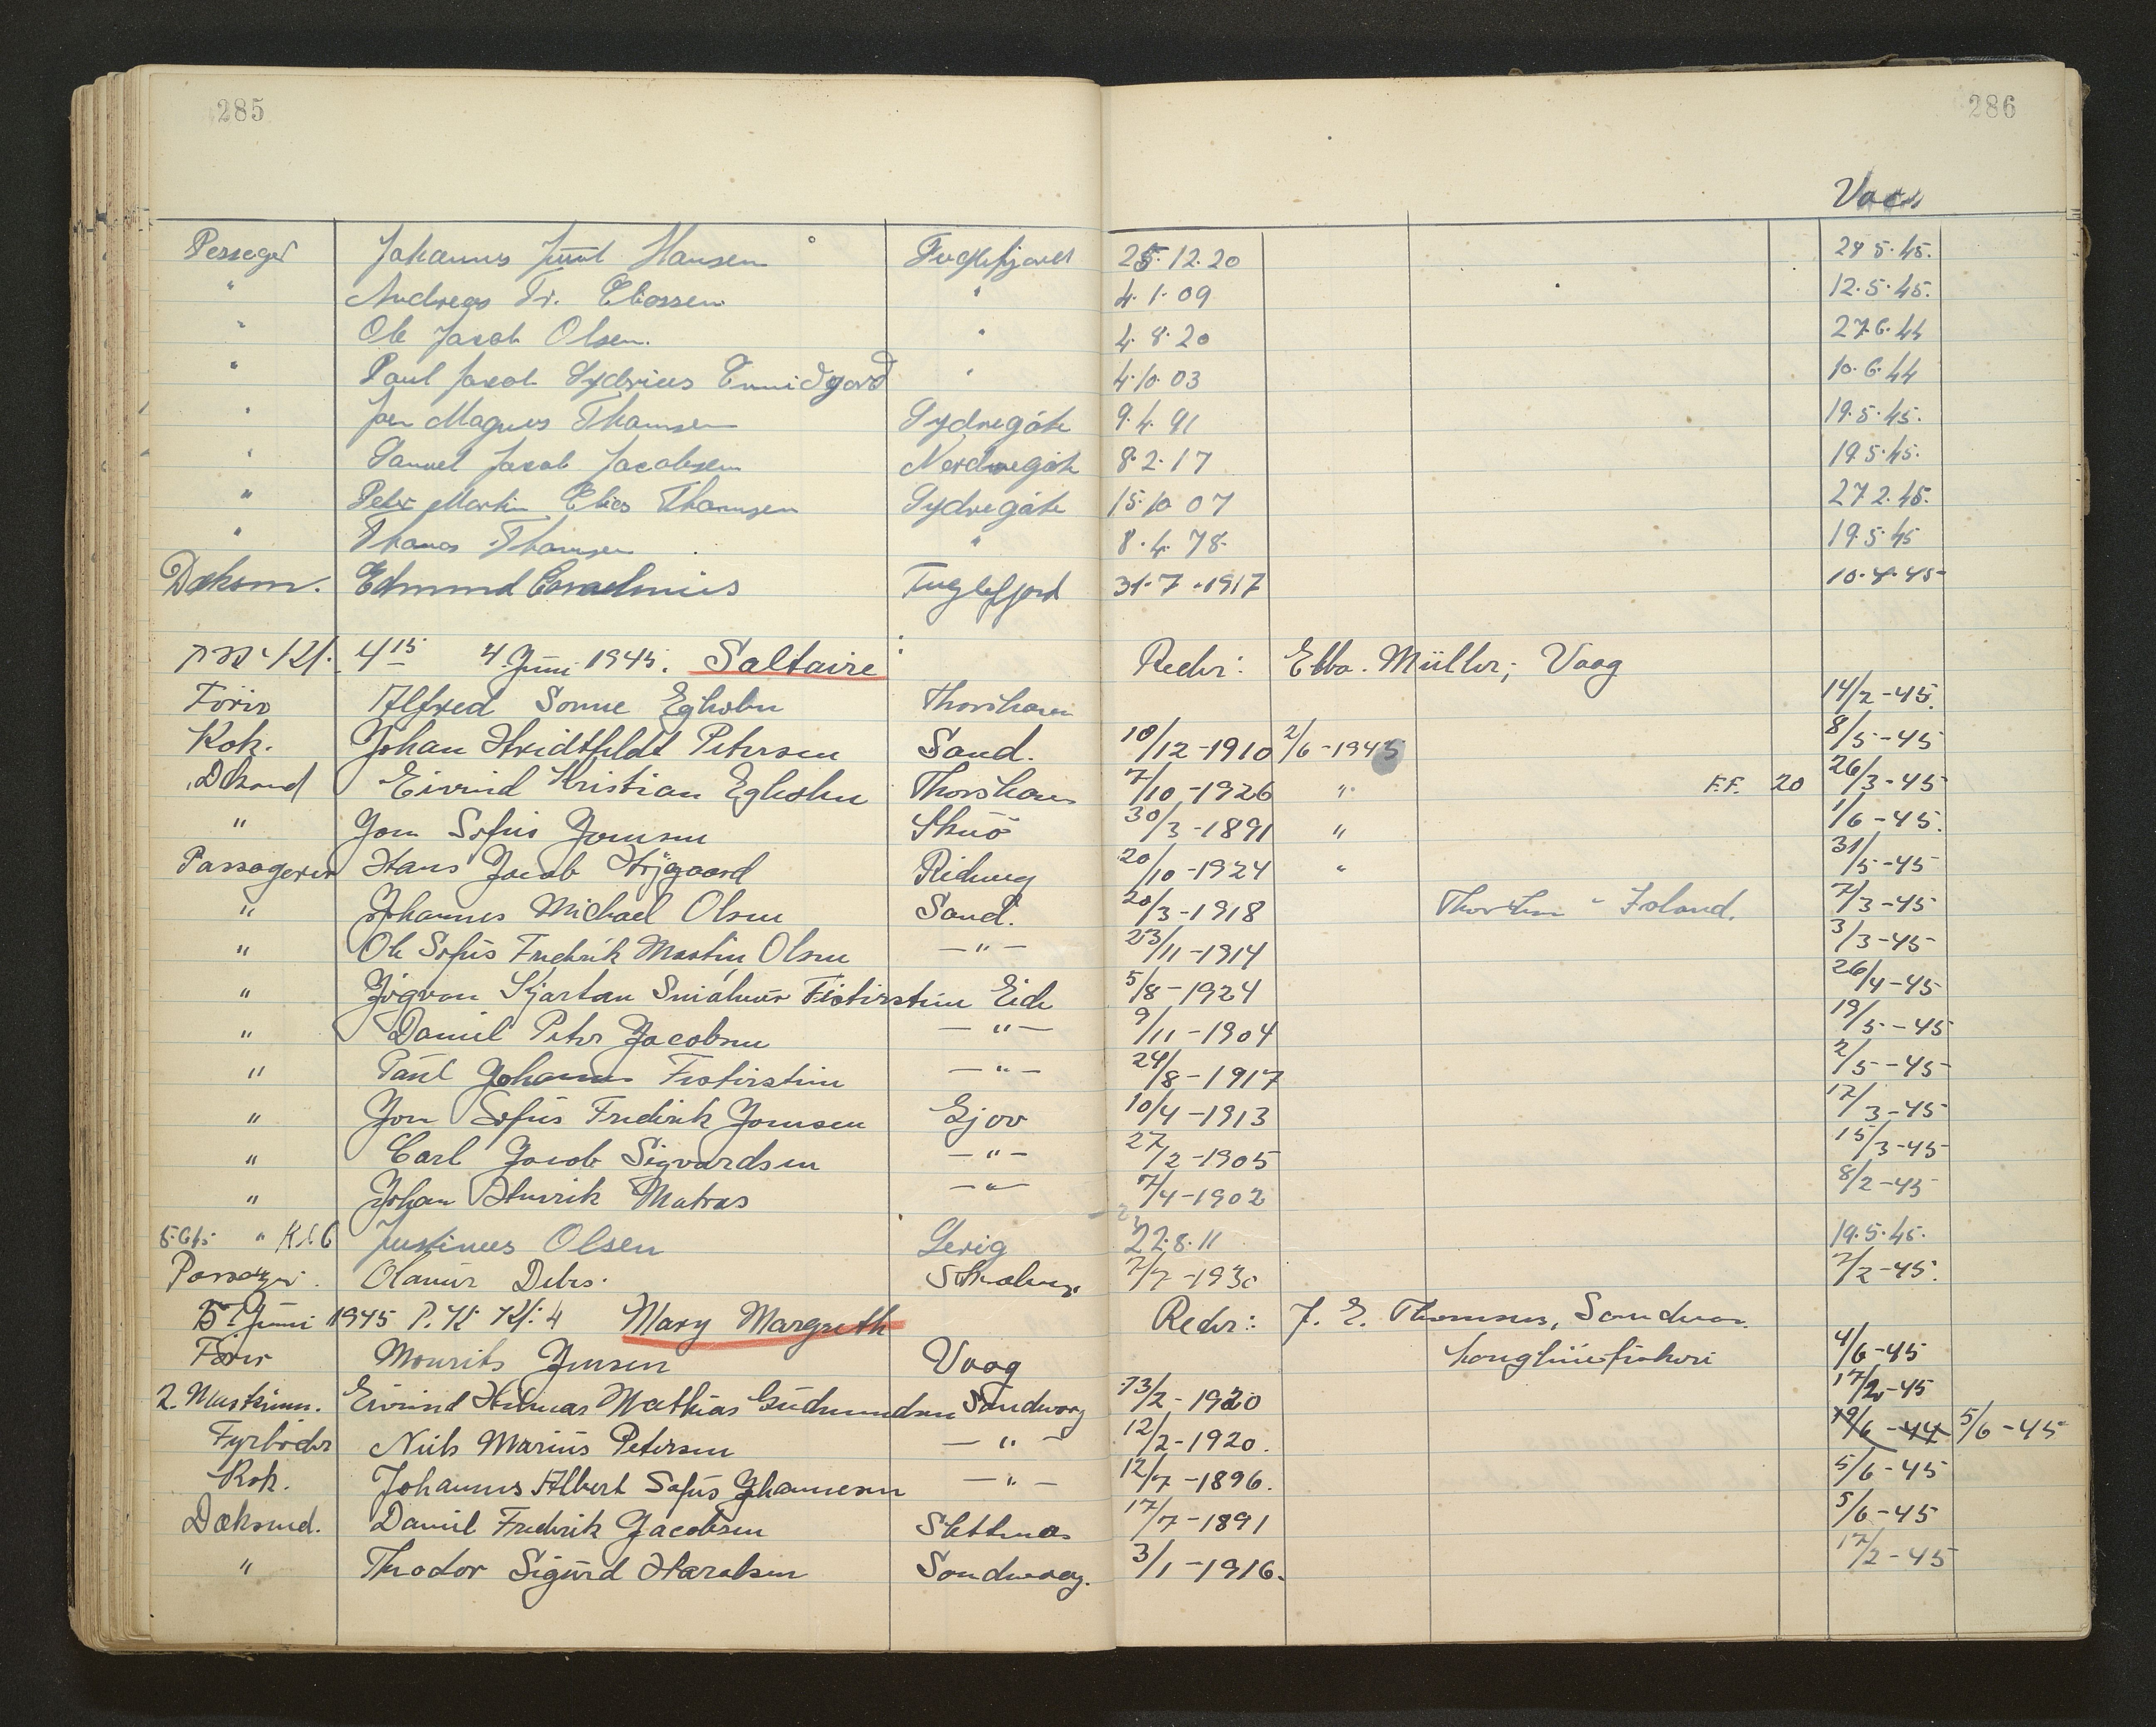 285 286
Vacc
Johannes Hansen Fuglefjord 25.12.20 28.5.45.
" Andreas Fr. Eliassen " 4.1.09 12.5.45.
" Ole Jacob Olsen. " 4.8.20 27.6.44
" Paul Jacob " 4.10.03 10.6.44
" Magnus Thomsen Sydregøte 9.4.91 19.5.45.
" Samuel Jacob Jacobsen Nordregøte 8.2.17 19.5.45.
" Peter Martin Elias Thomsen Sydregøte 15.10 07 27.2.45.
" Thomas Thomsen " 8.4.78. 19.5.45
Dæksm. Edmund Fuglefjord 31.7.-1917 10.4.45-
Kl. 4 15 4 Juni 1945. Saltaire Reder: Ebba Müller, Vaag
Fører Alfred Sonne Egholm Thorshavn 14/2-45.
Kok. Johan Hvidtfeldt Petersen Sand. 10/12-1910 2/6-1945 8/5-45
Eivind Kristian Egholm Thorshavn 7/10-1926 " F.F. 20 26/3-45
" Sofus Skuø 30/3-1891 " 1/6-45.
Passagerer Hans Jacob Højgaard 20/10-1924 " 31/5-45
" Johannes Michael Olsen Sand. 20/3-1918 7/3-45
" Ole Sofus Fredrik Martin Olsen —"— 23/11-1914 3/3-45-
" Jógvan Kjartan Eide 5/8-1924 26/4-45
" Daniel Peter Jacobsen —"— 9/11-1904 19/5-45
" Johannes —"— 24/8-1917 2/5-45-
" Jon Sofus Fredrik Joensen Gjov 10/4-1913 17/3-45
" Carl Jacob Sigvardsen —"— 27/2-1905 15/3-45
" Johan Henrik Matras —"— 7/4-1902 8/2-45
" Justinus Olsen 22.8.11 19.5.45.
Olavur Debes. 7/7-1930 7/2-45.
5 Juni 1945 P.K. Kl: 4 Mary Margreth Reder: J. E. Thomsen,
Fører Mourits Jensen Vaag Langliniefiskeri 4/6-45
2. Maskinm. Eivind Hilmar Mathias Gudmundsen Sandvaag 13/2-1920 17/2-45
Fyrbøder Niels Marius Petersen —"— 12/2-1920. 19/6-44 5/6-45
Kok. Johannes Albert Sofus Johannesen —"— 12/7-1896. 5/6-45
Dæksmd. Daniel Fredrik Jacobsen Slettenæs 17/7-1891 5/6-45
" Theodor Sigurd Haraldsen Sandvaag. 3/1-1916. 17/2-45